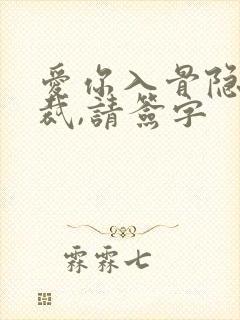 愛你入骨隐
裁,請簽字
霖霖七